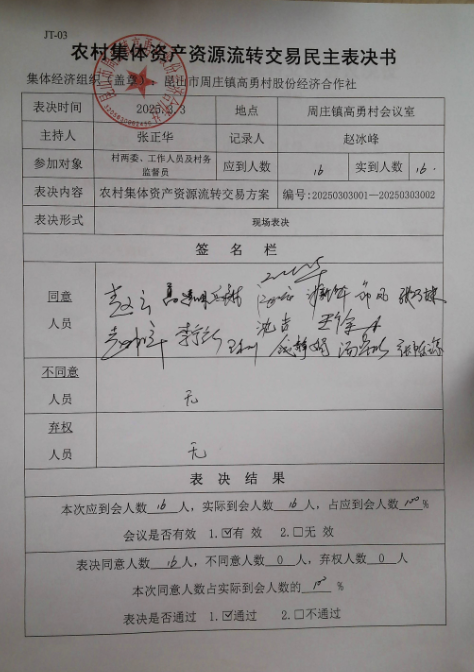 JT-03
农村集体资产资源流转交易民主表决书
集体经济组织（盖章）：昆山市周庄镇高勇村股份经济合作社
表决时间 2025.3.3 地点 周庄镇高勇村会议室
主持人 张正华 记录人 赵冰峰
参加对象 村两委、工作人员及村务监督员 应到人数 16 实到人数 16.
表决内容 农村集体资产资源流转交易方案 编号:20250303001—20250303002
表决形式 现场表决
签名栏
同意
人员
沈吉
不同意
人员 无
弃权
人员 无
表决结果
本次应到会人数 16 人，实际到会人数 16 人，占应到会人数 100 %
会议是否有效 1.☑有 效 2.□无 效
表决同意人数 16 人，不同意人数 0 人，弃权人数 0 人
本次同意人数占实际到会人数的 100 %
表决是否通过 1.☑通过 2.□不通过